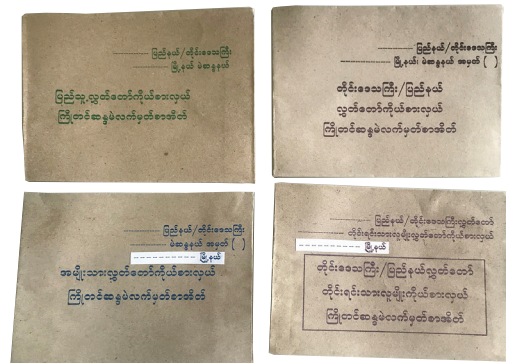 ---------------- ပြည်နယ်/တိုင်းဒေသကြီး
---------------- မြို့နယ် မဲဆန္ဒနယ်
ပြည်သူ့လွှတ်တော်ကိုယ်စားလှယ်
ကြိုတင်ဆန္ဒမဲလက်မှတ်စာအိတ်
---------------- ပြည်နယ်/တိုင်းဒေသကြီး
---------------- မြို့နယ်၊ မဲဆန္ဒနယ် အမှတ် ( )
တိုင်းဒေသကြီး/ပြည်နယ်
လွှတ်တော်ကိုယ်စားလှယ်
ကြိုတင်ဆန္ဒမဲလက်မှတ်စာအိတ်
---------------- ပြည်နယ်/တိုင်းဒေသကြီး
---------------- မဲဆန္ဒနယ် အမှတ် ( )
---------------- မြို့နယ်
အမျိုးသားလွှတ်တော်ကိုယ်စားလှယ်
ကြိုတင်ဆန္ဒမဲလက်မှတ်စာအိတ်
---------------- ပြည်နယ်/တိုင်းဒေသကြီးလွှတ်တော်
---------------- တိုင်းရင်းသားလူမျိုးလွှတ်တော်ကိုယ်စားလှယ်
---------------- မြို့နယ်
တိုင်းဒေသကြီး/ပြည်နယ်လွှတ်တော်
တိုင်းရင်းသားလူမျိုးကိုယ်စားလှယ်
ကြိုတင်ဆန္ဒမဲလက်မှတ်စာအိတ်